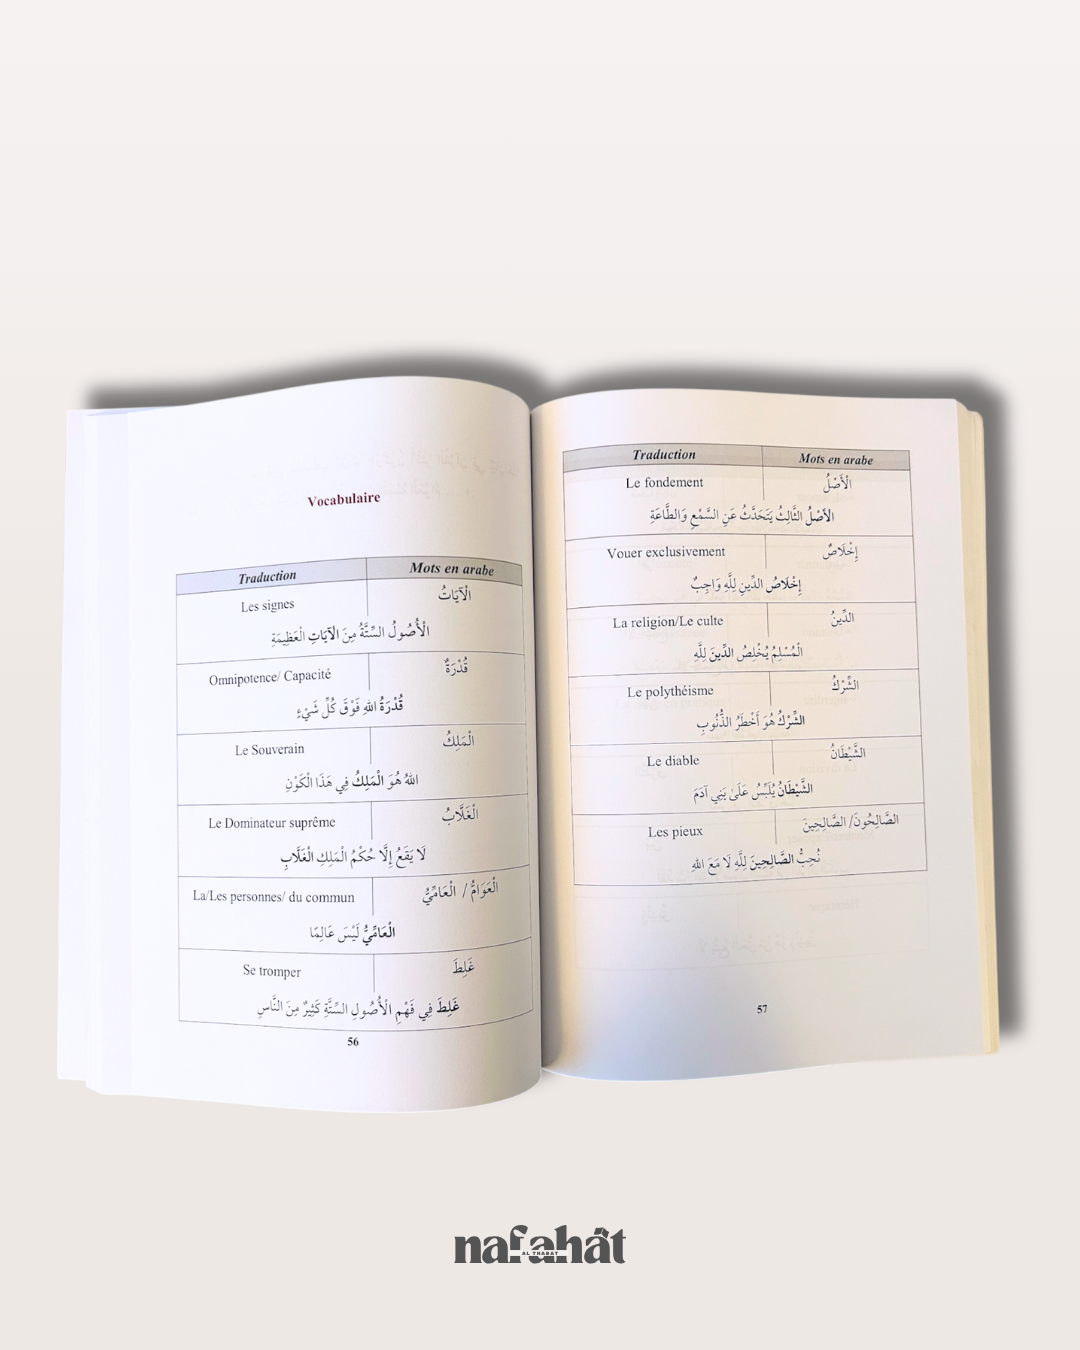 Vocabulaire
Traduction Mots en arabe
Les signes الْآيَاتُ
الْأُصُولُ السِّتَّةُ مِنَ الْآيَاتِ الْعَظِيمَةِ
Omnipotence/ Capacité قُدْرَةٌ
قُدْرَةُ اللهِ فَوْقَ كُلِّ شَيْءٍ
Le Souverain الْمَلِكُ
اللهُ هُوَ الْمَلِكُ فِي هَذَا الْكَوْنِ
Le Dominateur suprême الْغَلَّابُ
لَا يَقَعُ إِلَّا حُكْمُ الْمَلِكِ الْغَلَّابِ
La/Les personnes/ du commun الْعَوَامُّ / الْعَامِّيُّ
الْعَامِّيُّ لَيْسَ عَالِمًا
Se tromper غَلِطَ
غَلِطَ فِي فَهْمِ الْأُصُولِ السِّتَّةِ كَثِيرٌ مِنَ النَّاسِ
56
Traduction Mots en arabe
Le fondement الْأَصْلُ
الْأَصْلُ الثَّالِثُ يَتَحَدَّثُ عَنِ السَّمْعِ وَالطَّاعَةِ
Vouer exclusivement إِخْلَاصٌ
إِخْلَاصُ الدِّينِ لِلَّهِ وَاجِبٌ
La religion/Le culte الدِّينُ
الْمُسْلِمُ يُخْلِصُ الدِّينَ لِلَّهِ
Le polythéisme الشِّرْكُ
الشِّرْكُ هُوَ أَخْطَرُ الذُّنُوبِ
Le diable الشَّيْطَانُ
الشَّيْطَانُ يُلَبِّسُ عَلَىٰ بَنِي آدَمَ
Les pieux الصَّالِحُونَ/ الصَّالِحِينَ
نُحِبُّ الصَّالِحِينَ لِلَّهِ لَا مَعَ اللهِ
57
nafahāt
AL THABAT